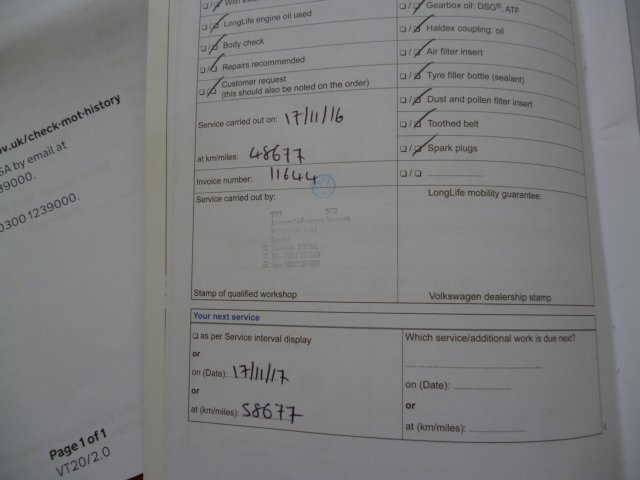 ov.uk/check-mot-history
SA by email at
39000.
0300 1239000.
Page 1 of 1
VT20/2.0
LongLife engine oil used
Body check
Repairs recommended
Customer request
(this should also be noted on the order)
Service carried out on: 17/11/16
at km/miles: 48677
Invoice number: 11644
Service carried out by:
Stamp of qualified workshop
Gearbox oil: DSG®, ATF
Haldex coupling: oil
Air filter insert
Tyre filler bottle (sealant)
Dust and pollen filter insert
Toothed belt
Spark plugs
LongLife mobility guarantee:
Volkswagen dealership stamp
Your next service
as per Service interval display
or
on (Date): 17/11/17
or
at (km/miles): 58677
Which service/additional work is due next?
on (Date): ....................
or
at (km/miles): ....................